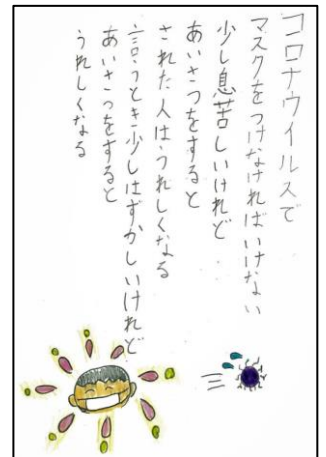 コロナウイルスで
マスクをつけなければいけない
少し息苦しいけれど
あいさつをすると
された人はうれしくなる
言うとき少しはずかしいけれど
あいさつをすると
うれしくなる